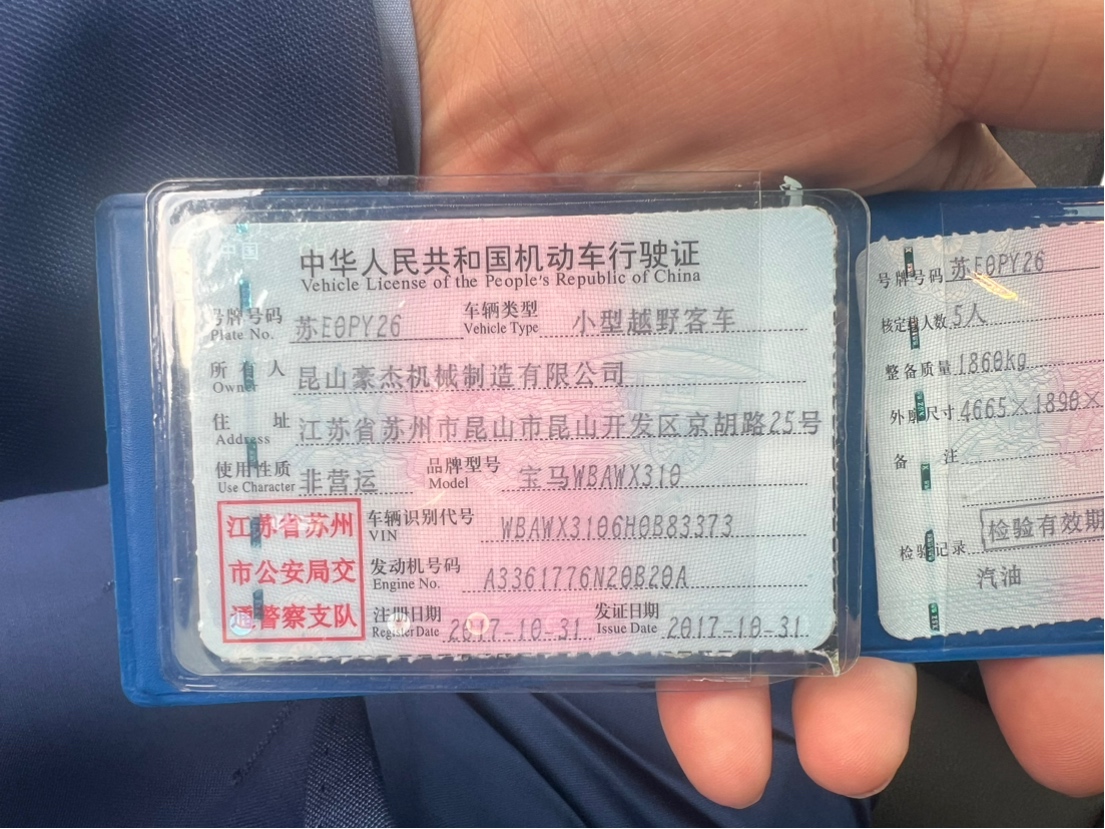 中华人民共和国机动车行驶证
Vehicle License of the People's Republic of China
号牌号码 苏E0PY26 车辆类型 小型越野客车
Plate No. Vehicle Type
所有人 昆山豪杰机械制造有限公司
Owner
住址 江苏省苏州市昆山市昆山开发区京胡路25号
Address
使用性质 非营运 品牌型号 宝马WBAWX310
Use Character Model
江苏省苏州
市公安局交
通警察支队
车辆识别代号 WBAWX3106H0B83373
VIN
发动机号码 A3361776N20B20A
Engine No.
注册日期 2017-10-31 发证日期 2017-10-31
Register Date Issue Date
号牌号码 苏E0PY26
核定载人数 5人
整备质量 1860kg
外廓尺寸 4665×1890×
备注
检验记录
检验有效期
汽油